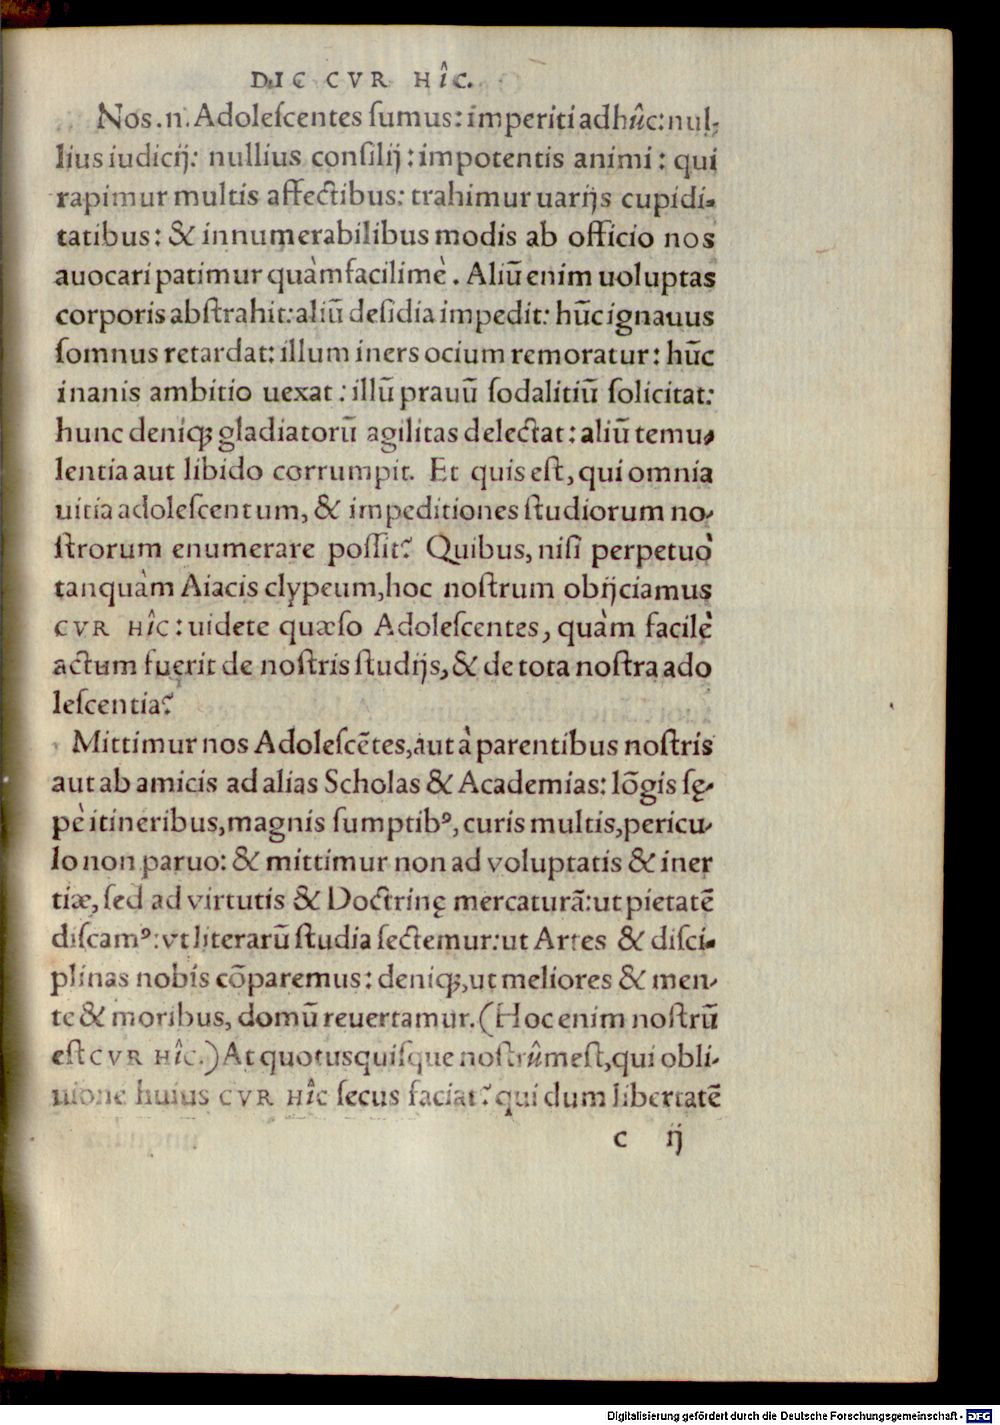 DIC CVR HîC.
Nos .n. Adoleſcentes ſumus: imperiti adhûc: nul-
lius iudicij: nullius conſilij: impotentis animi: qui
rapimur multis affectibus: trahimur uarijs cupidi-
tatibus: & innumerabilibus modis ab officio nos
auocari patimur quàm facilimè. Aliū enim uoluptas
corporis abſtrahit: aliū deſidia impedit: hūc ignauus
ſomnus retardat: illum iners ocium remoratur: hūc
inanis ambitio uexat: illū prauū ſodalitiū ſolicitat:
hunc deniqꝫ gladiatorū agilitas delectat: aliū temu-
lentia aut libido corrumpit. Et quis eſt, qui omnia
uitia adoleſcentum, & impeditiones ſtudiorum no-
ſtrorum enumerare poſſit? Quibus, niſi perpetuò
tanquàm Aiacis clypeum, hoc noſtrum obijciamus
CVR HîC: uidete quæſo Adoleſcentes, quàm facilè
actum fuerit de noſtris ſtudijs, & de tota noſtra ado
leſcentia?
Mittimur nos Adoleſcētes, aut à parentibus noſtris
aut ab amicis ad alias Scholas & Academias: lōgis ſę-
pè itineribus, magnis ſumptibꝰ, curis multis, pericu-
lo non paruo: & mittimur non ad voluptatis & iner
tiæ, ſed ad virtutis & Doctrinę mercaturā: ut pietatē
diſcamꝰ: vt literarū ſtudia ſectemur: ut Artes & diſci-
plinas nobis cōparemus: deniqꝫ, ut meliores & men-
te & moribus, domū reuertamur. (Hoc enim noſtrū
eſt CVR HîC.) At quotusquiſque noſtrûm eſt, qui obli-
uione huius CVR HîC ſecus faciat? qui dum libertatē
c ij
Digitalisierung gefördert durch die Deutsche Forschungsgemeinschaft - DFG